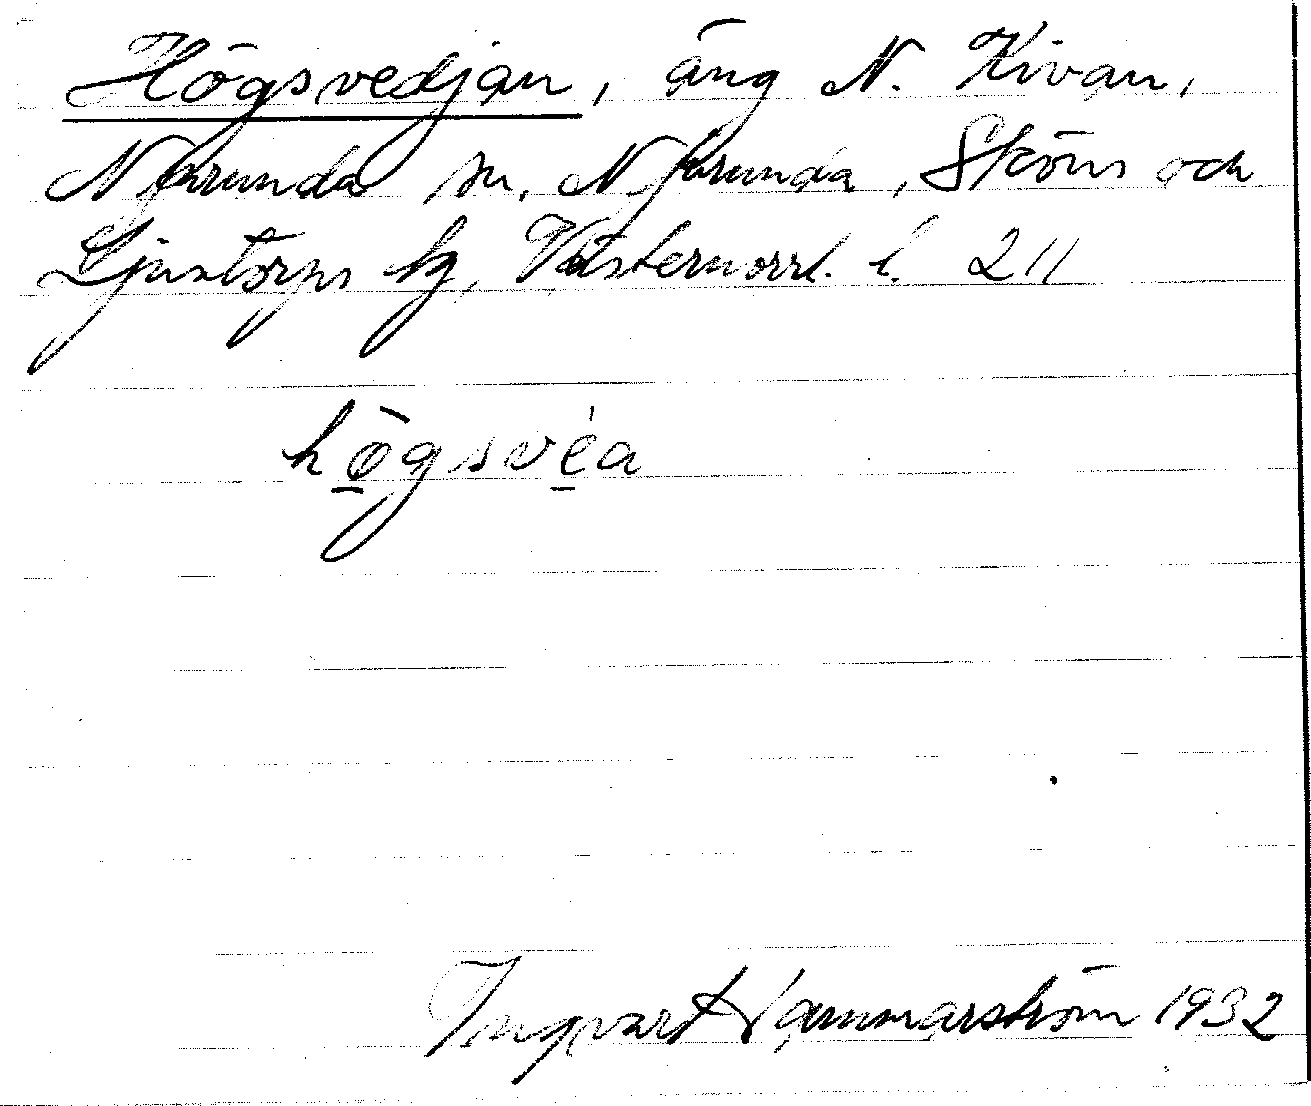 Högsvedjan, äng N. Kivan,
Njurunda sn, Njurunda, Sköns och
Ljustorps hg, Västernorrl. l. 211
högsvea
Ingvart Hammarström 1932